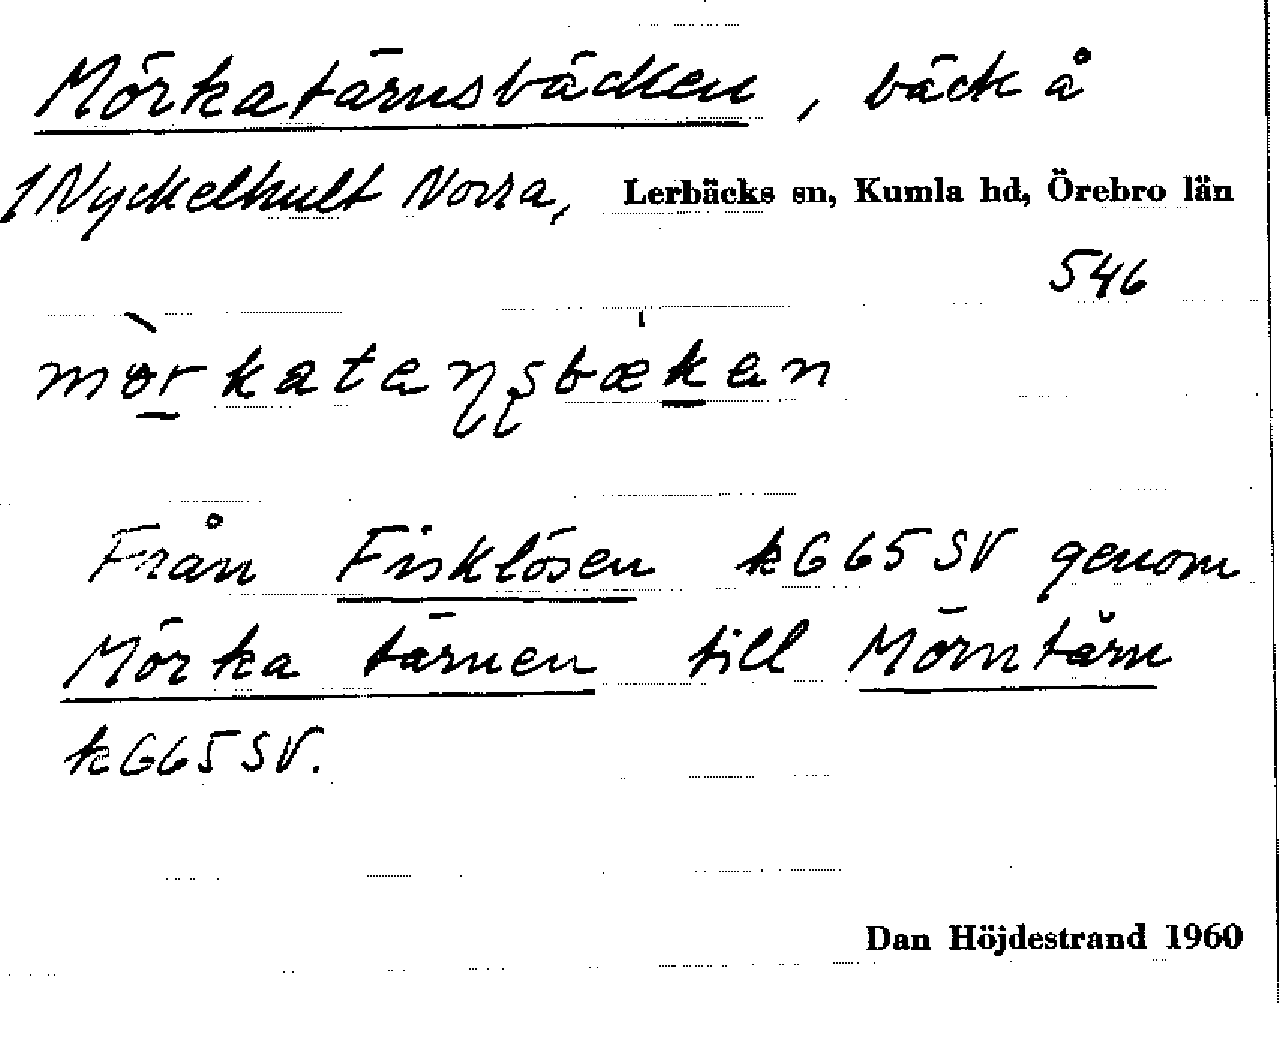 Mörkatärnsbäcken, bäck å
1 Nyckelhult Norra, Lerbäcks sn, Kumla hd, Örebro län
546
mòrkataɳʂbækan
Från Fisklösen kG65SV genom
Mörka tärnen till Mörntärn
kG65SV.
Dan Höjdestrand 1960